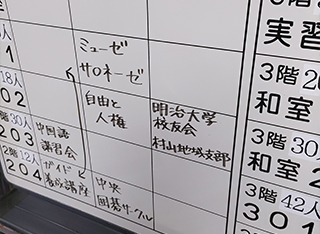 ミューゼ
サロネーゼ
18人
02
自由と
人権
明治大学
校友会
村山地域支部
30人
203
中国語
講習会
2階 12人
204
ガイド
養成講座
中央
囲碁サークル
実習
3階
和室
3階 30人
和室
3階 42人
301